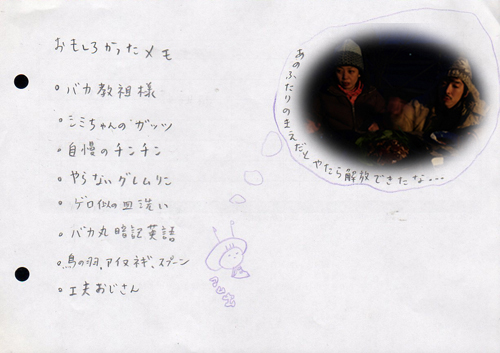 おもしろかったメモ
・バカ教祖様
・シミちゃんのガッツ
・自慢のチンチン
・やらないグレムリン
・ゲロ似の皿洗い
・バカ丸暗記英語
・鳥の羽、アイヌネギ、スプーン
・工夫おじさん
あのふたりのまえだとやたら解放できたな...